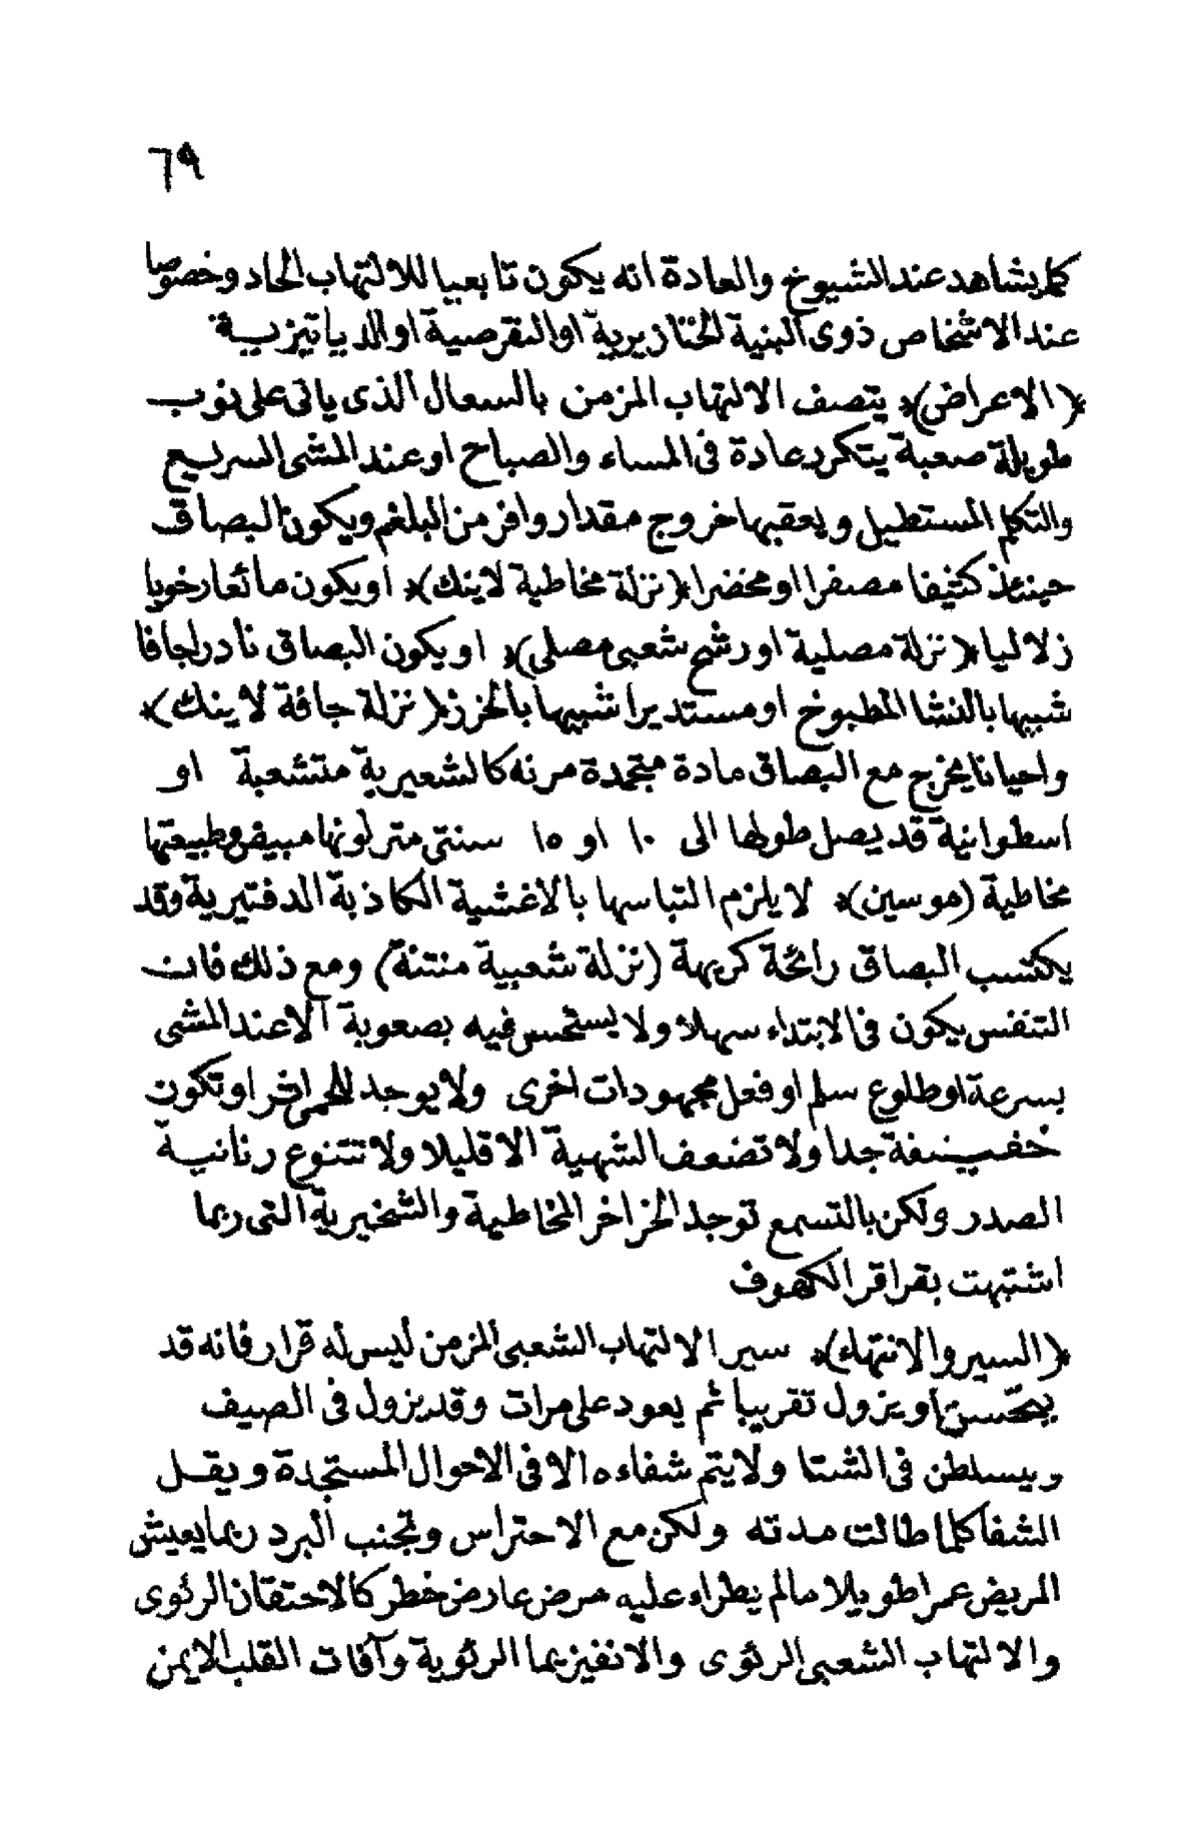 ٦٩
كما يشاهد عند الشيوخ والعادة انه يكون تابعيا للالتهاب الحاد وخصوصا
عند الاشخاص ذوى البنية الخنازيرية او النقرصية او الدياتيزية
﴿الاعراض﴾ يتصف الالتهاب المزمن بالسعال الذى ياتى على نوب
طويلة صعبة يتكرر عادة فى المساء والصباح او عند المشى السريع
والتكلم المستطيل ويعقبها خروج مقدار وافر من البلغم ويكون البصاق
حينئذ كثيفا مصفرا او مخضرا ﴿نزلة مخاطية لاينك﴾ او يكون مائعا رخويا
زلاليا ﴿نزلة مصلية او رشح شعبى مصلى﴾ او يكون البصاق نادرا جافا
شبيها بالنشا المطبوخ او مستديرا شبيها بالخرز ﴿نزلة جافة لاينك﴾
واحيانا يخرج مع البصاق مادة متجمدة مرنه كالشعيرية متشعبة او
اسطوانية قد يصل طولها الى ١٠ او ١٥ سنتى متر لونها مبيض وطبيعتها
مخاطية (موسين﴾ لا يلزم التباسها بالاغشية الكاذبة الدفتيرية وقد
يكتسب البصاق رائحة كريهة (نزلة شعبية منتنة) ومع ذلك فان
التنفس يكون فى الابتداء سهلا ولا يستحس فيه بصعوبة الا عند المشى
بسرعة او طلوع سلم او فعل مجهودات اخرى ولا يوجد للحمى اثرا او تكون
خفيفة جدا ولا تضعف الشهية الا قليلا ولا تتنوع رنانية
الصدر ولكن بالتسمع توجد الخراخر المخاطية والشخيرية التى ربما
اشتبهت بقراقر الكهوف
﴿السير والانتهاء﴾ سير الالتهاب الشعبى المزمن ليس له قرار فانه قد
يتحسن او يزول تقريبا ثم يعود على مرات وقد يزول فى الصيف
ويتسلطن فى الشتا ولا يتم شفاءه الا فى الاحوال المستجدة ويقل
الشفا كلما طالت مدته ولكن مع الاحتراس وتجنب البرد ربما يعيش
المريض عمرا طويلا مالم يطراء عليه مرض عارض خطر كالاحتقان الرئوى
والالتهاب الشعبى الرئوى والانفيزيما الرئوية وآفات القلب الايمن